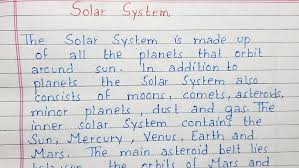 Solar System
The Solar System is made up
of all the planets that orbit
around sun. In addition to
planets the Solar System also
consists of moons, comets, asteroids,
minor planets, dust and gas. The
inner solar System contains the
Sun, Mercury, Venus, Earth and
Mars. The main asteroid belt lies
between the orbits of Mars and